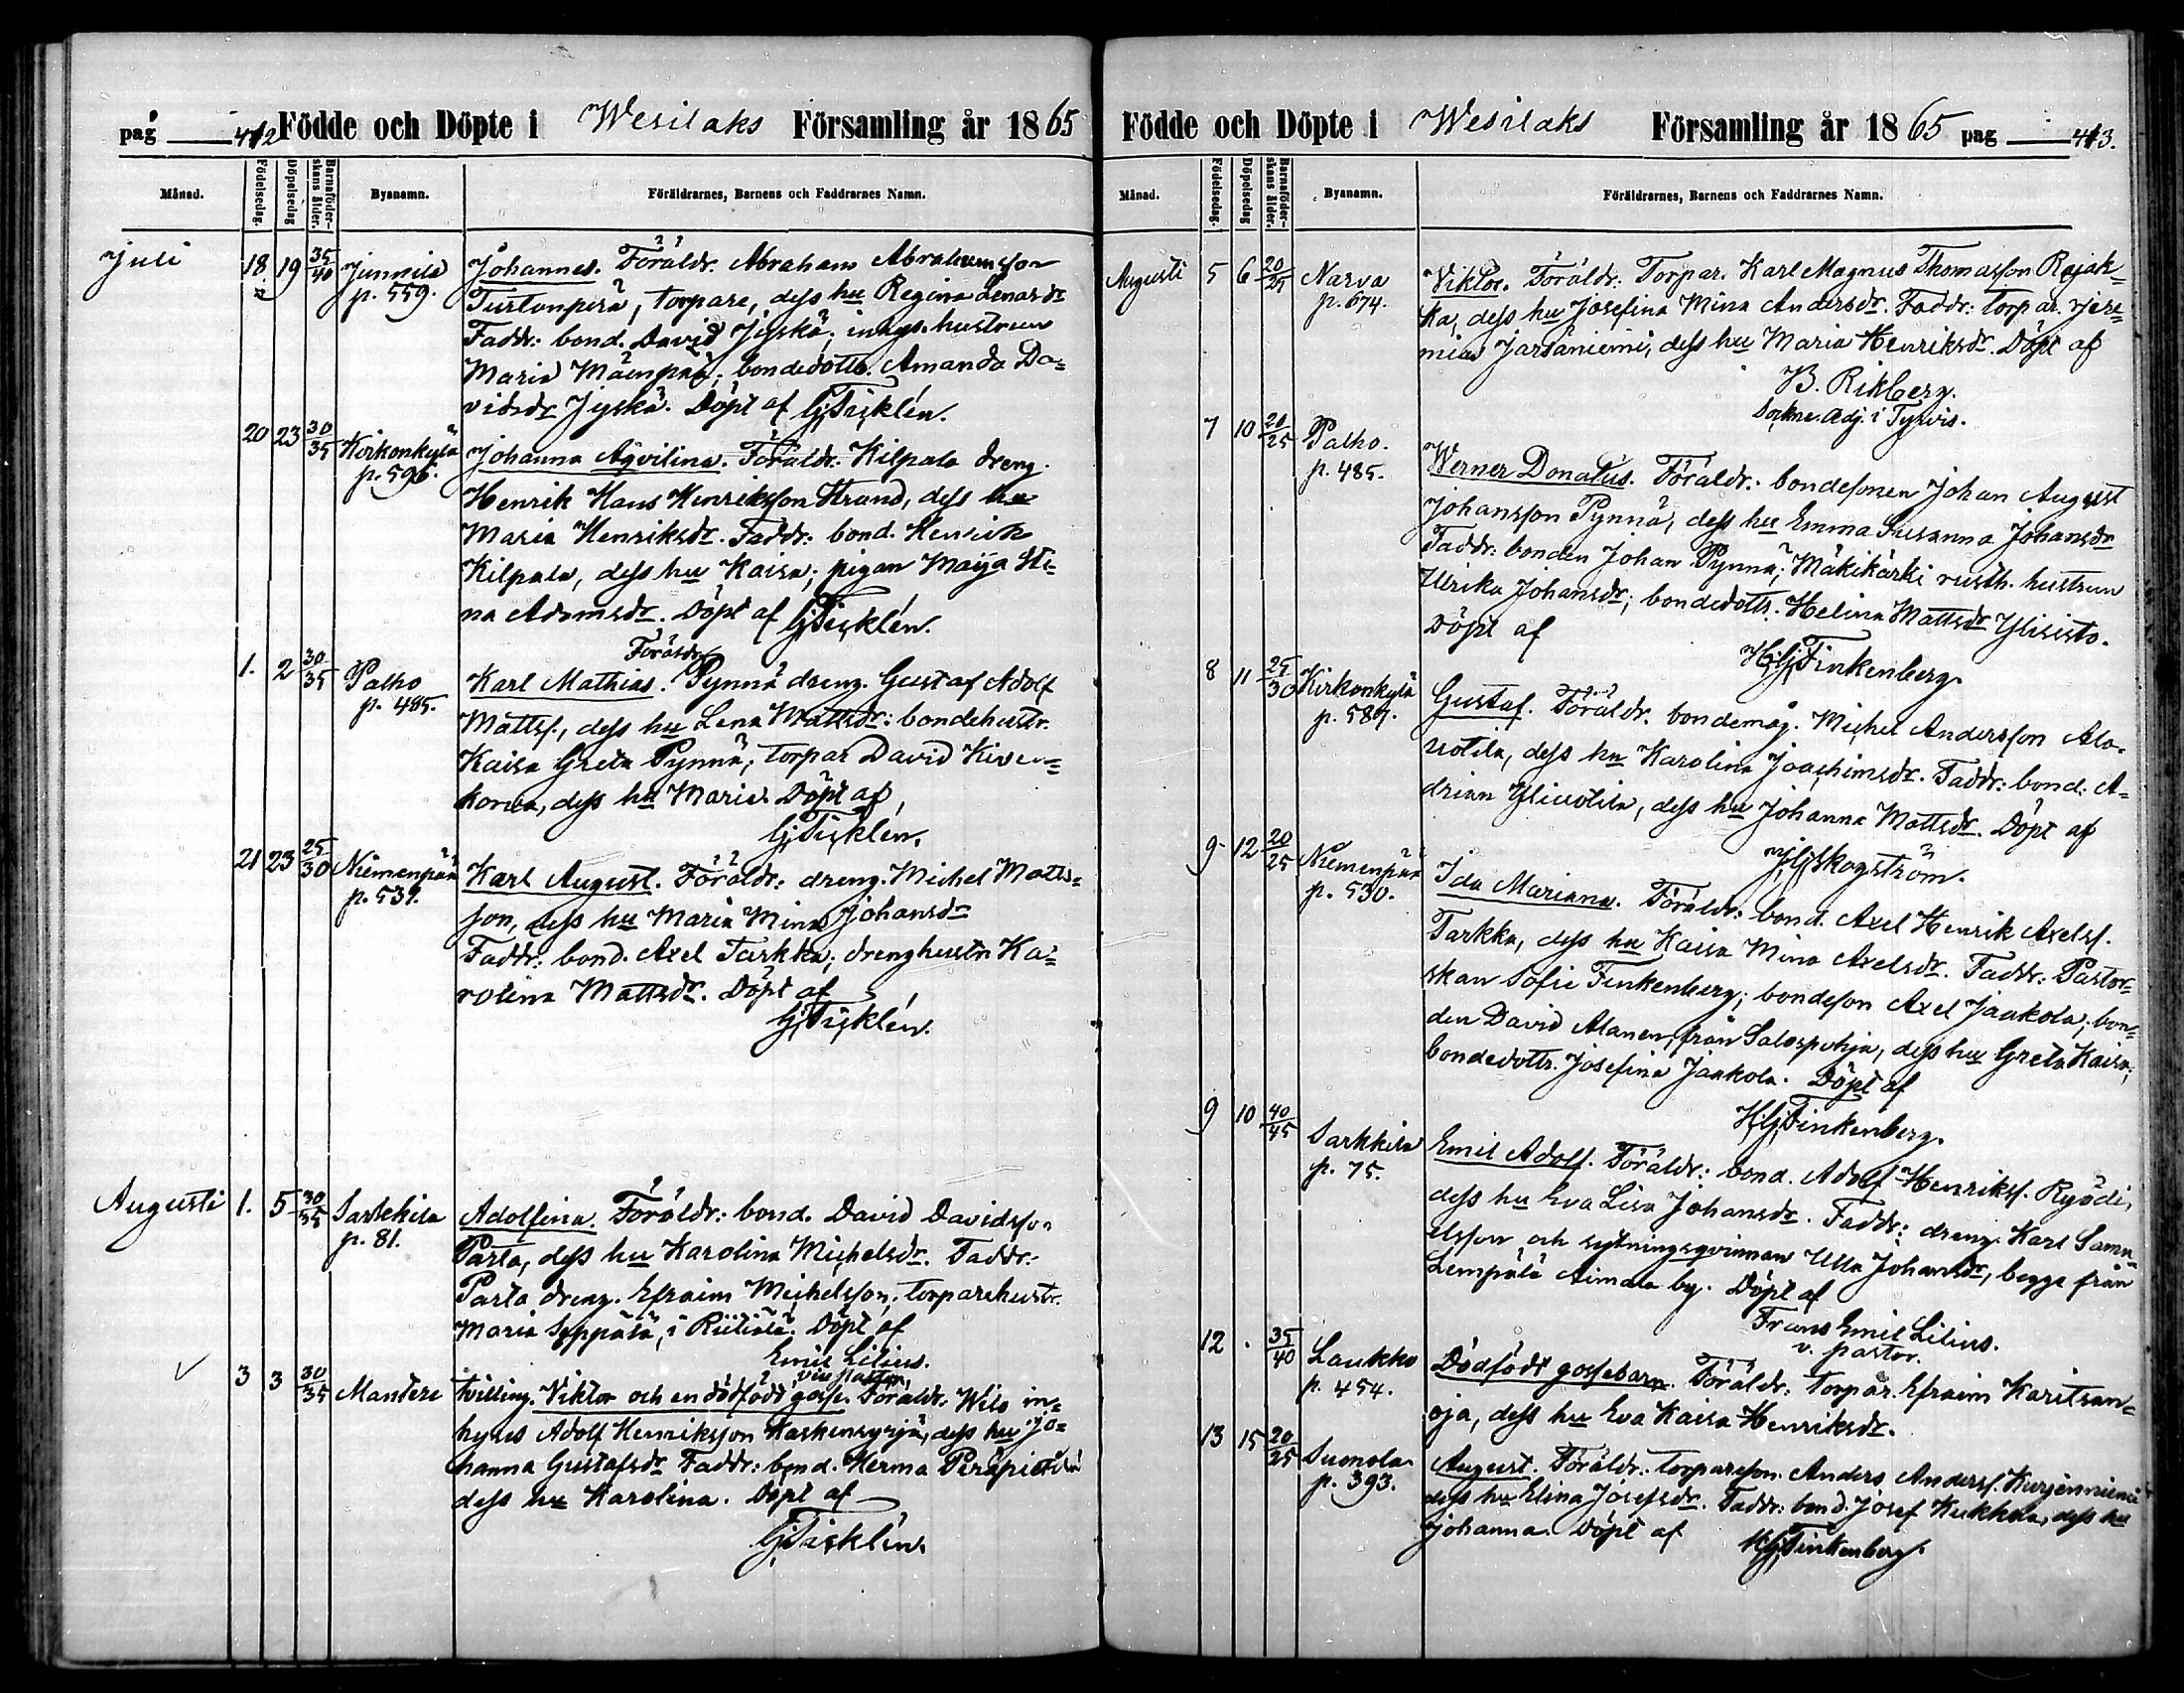 pag 412 Födde och Döpte i Wesilaks Församling år 1865
Månad. Födelsedag. Döpelsedag Barnaföderskans ålder. Byanamn. Föräldrarnes, Barnens och Faddrarnes Namn.
Juli 18 19 35/40 Junnila Johannes. Föräldr. Abraham Abrahamsson
p. 559. Turtonperä, torpare, dess hu Regina Lenasdr
Faddr: bond. David Jyskä, inhys. hustrun
Maria Mäenpää; bondedottr. Amanda Da-
vidsdr Jyskä. Döpt af G. Ticklén.
20 23 30/35 Kirkonkylä Johanna Aqvilina. Föräldr: Kilpala dreng.
p. 596. Henrik Hans Henriksson Strand, dess hu
Maria Henriksdr. Faddr: bond. Henrik
Kilpala, dess hu Kaisa; pigan Maija Sti-
na Adamsdr. Döpt af G. Ticklén.
Föräldr.
1. 2 30/35 Palho Karl Mathias. Pynnä dreng. Gustaf Adolf
p. 485. Mattsf., dess hu Lena Mattsdr: bondehustr.
Kaisa Greta Pynnä, torpar David Kiven-
korva, dess hu Maria. Döpt af
G. Ticklén.
21 23 25/30 Niemenpää Karl August. Föräldr: dreng. Michel Matts-
p. 539. son, dess hu Maria Mina Johansdr
Faddr: bond. Axel Tarkka; drenghustr. Ka-
rolina Mattsdr. Döpt af
G. Ticklén.
Augusti 1. 5 30/35 Sarkkila Adolfina. Föräldr: bond. David Davidsson
p. 81. Parta, dess hu Karolina Michelsdr. Faddr:
Parta dreng. Efraim Michelsson, torparehustr.
Maria Seppälä, i Riitiälä. Döpt af
Emil Lilius.
vice pastor,
3 3 30/35 Mantere tvilling. Viktor och en dödfödd gosse. Föräldr: Wilo in-
hyses Adolf Henriksson Kaskensyrjä, dess hu Jo-
hanna Gustafsdr Faddr: bond. Herma
dess hu Karolina. Döpt af
G. Ticklén.
Födde och Döpte i Wesilaks Församling år 1865 pag 413.
Månad. Födelsedag. Döpelsedag Barnaföderskans ålder. Byanamn. Föräldrarnes, Barnens och Faddrarnes Namn.
Augusti 5 6 20/25 Narva Viktor. Föräldr: Torpar. Karl Magnus Thomasson Rajak-
p. 674. ka, dess hu Josefina Mina Andersdr. Faddr: torpar. Jere-
mias Jarsäniemi, dess hu Maria Henriksdr. Döpt af
B. Rikberg.
Sockne. adj. i Tyrvis.
7 10 20/25 Palho. Werner Donatus. Föräldr: bondesonen Johan August
p. 485. Johansson Pynnä, dess hu Emma Susanna Johansdr
Faddr: bonden Johan Pynnä; Mäkikärki rusth. hustrun
Ulrika Johansdr; bondedottr. Helina Mattsdr Ylisisto.
Döpt af
H. G. Finkenberg.
8 11 25/30 Kirkonkylä Gustaf. Föräldr. bondemåg. Michel Andersson Ala-
p. 587. uotila, dess hu Karolina Joachimsdr. Faddr: bond. A-
drian Yliuotila, dess hu Johanna Mattsdr. Döpt af
J. G. Skogström.
9 12 20/25 Niemenpää Ida Mariana. Föräldr: bond. Axel Henrik Axelsf.
p. 530. Tarkka, dess hu Kaisa Mina Axelsdr. Faddr: Pastor-
skan Sofie Finkenberg; bondeson Axel Jaakola; bon-
den David Alanen, från Salospohja, dess hu Greta Kaisa;
bondedottr. Josefina Jaakola. Döpt af
H. G. Finkenberg.
9 10 40/45 Sarkkila Emil Adolf. Föräldr: bond. Adolf Henriksf. Ryödi,
p. 75. dess hu Eva Lisa Johansdr. Faddr: dreng. Karl Samu-
elsson och sytningsqvinnan Ulla Johansdr, begge från
Lempälä Aimala by. Döpt af
Frans Emil Lilius.
v. pastor.
12 . 35/40 Laukko Dödfödt gossebarn. Föräldr: torpar. Efraim Karitsan-
p. 454. oja, dess hu Eva Kaisa Henriksdr.
13 15 20/25 Suomela August. Föräldr: torpareson. Anders Andersf. Kurjenniemi
p. 393. dess hu Elina Josefsdr. Faddr: bond. Josef Kukkola, dess hu
Johanna. Döpt af H. G. Finkenberg.